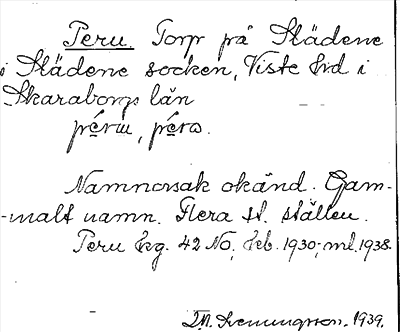 Peru. Torp på Slädene
i Slädene socken, Viste hd i
Skaraborgs län
péru, péra.
Namnorsak okänd. Gam-
-malt namn. Flera st. ställen.
Peru Ekg. 42 NO, Jeb. 1930; ml. 1938.
Svenungsson. 1939.